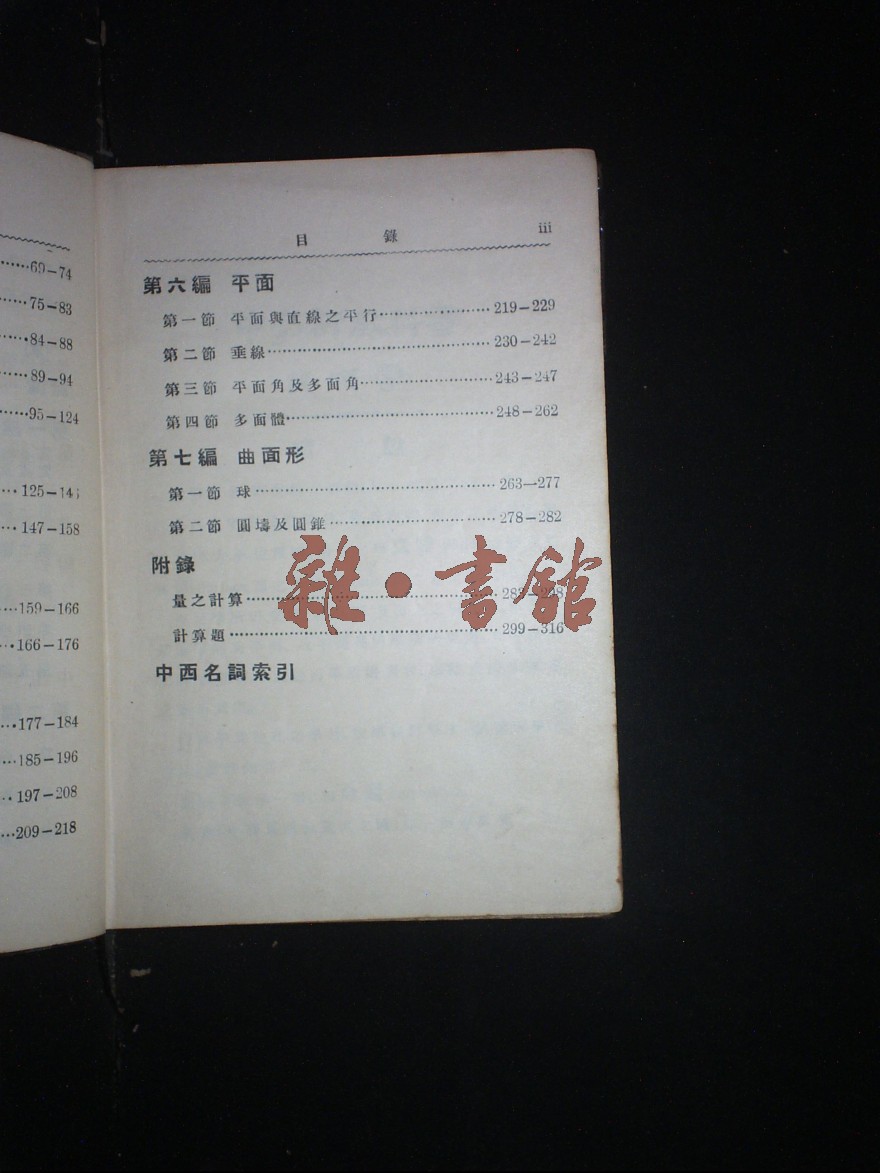 69-74
75-83
84-88
89-94
95-124
125-14
147-158
159-166
166-176
177-184
185-196
197-208
209-218
目 錄 iii
第六編 平面
第一節 平面與直線之平行 219-229
第二節 垂線 230-242
第三節 平面角及多面角 243-247
第四節 多面體 248-262
第七編 曲面形
第一節 球 263-277
第二節 圓壔及圓錐 278-282
附錄
量之計算
計算題 299-316
中西名詞索引
雜·書館